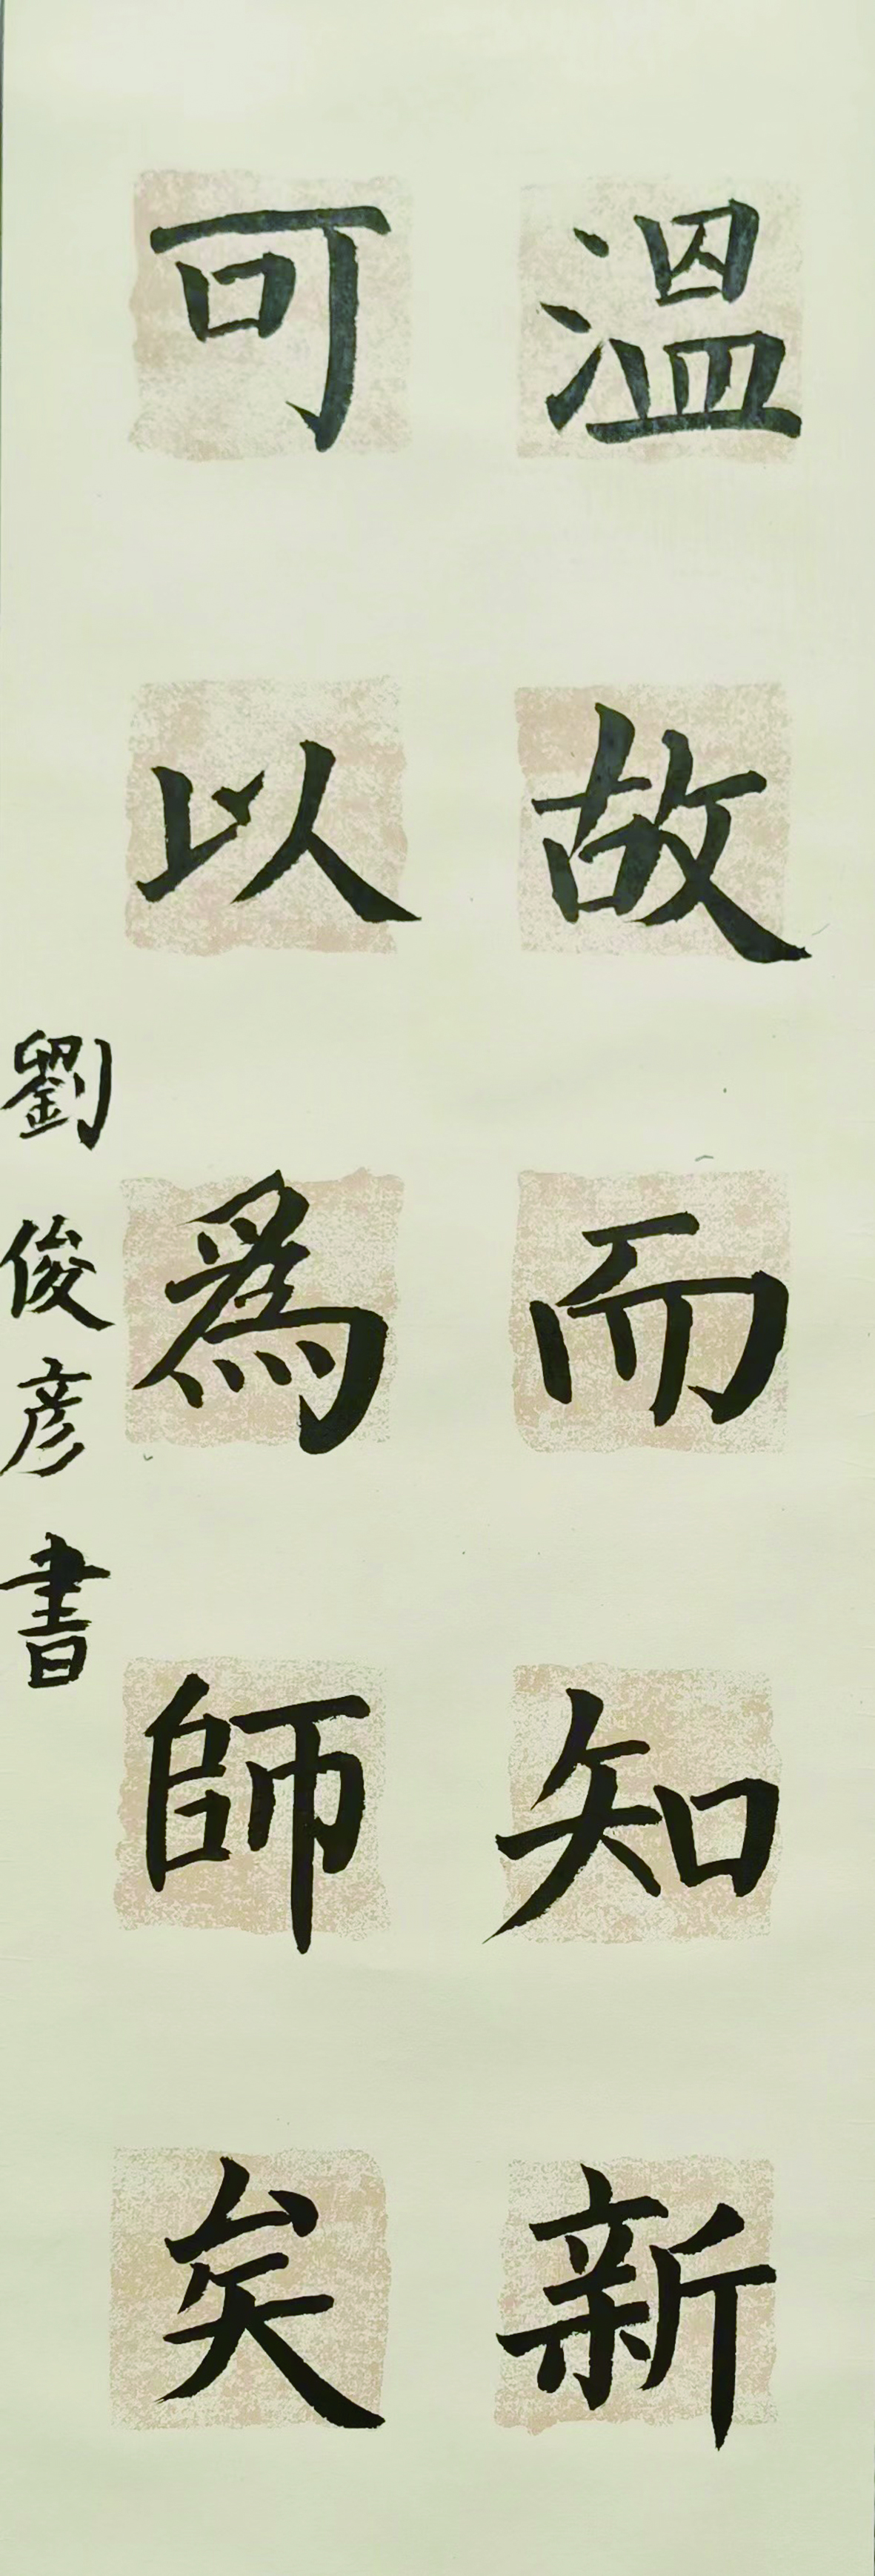 溫故而知新
可以為師矣
劉俊彥書